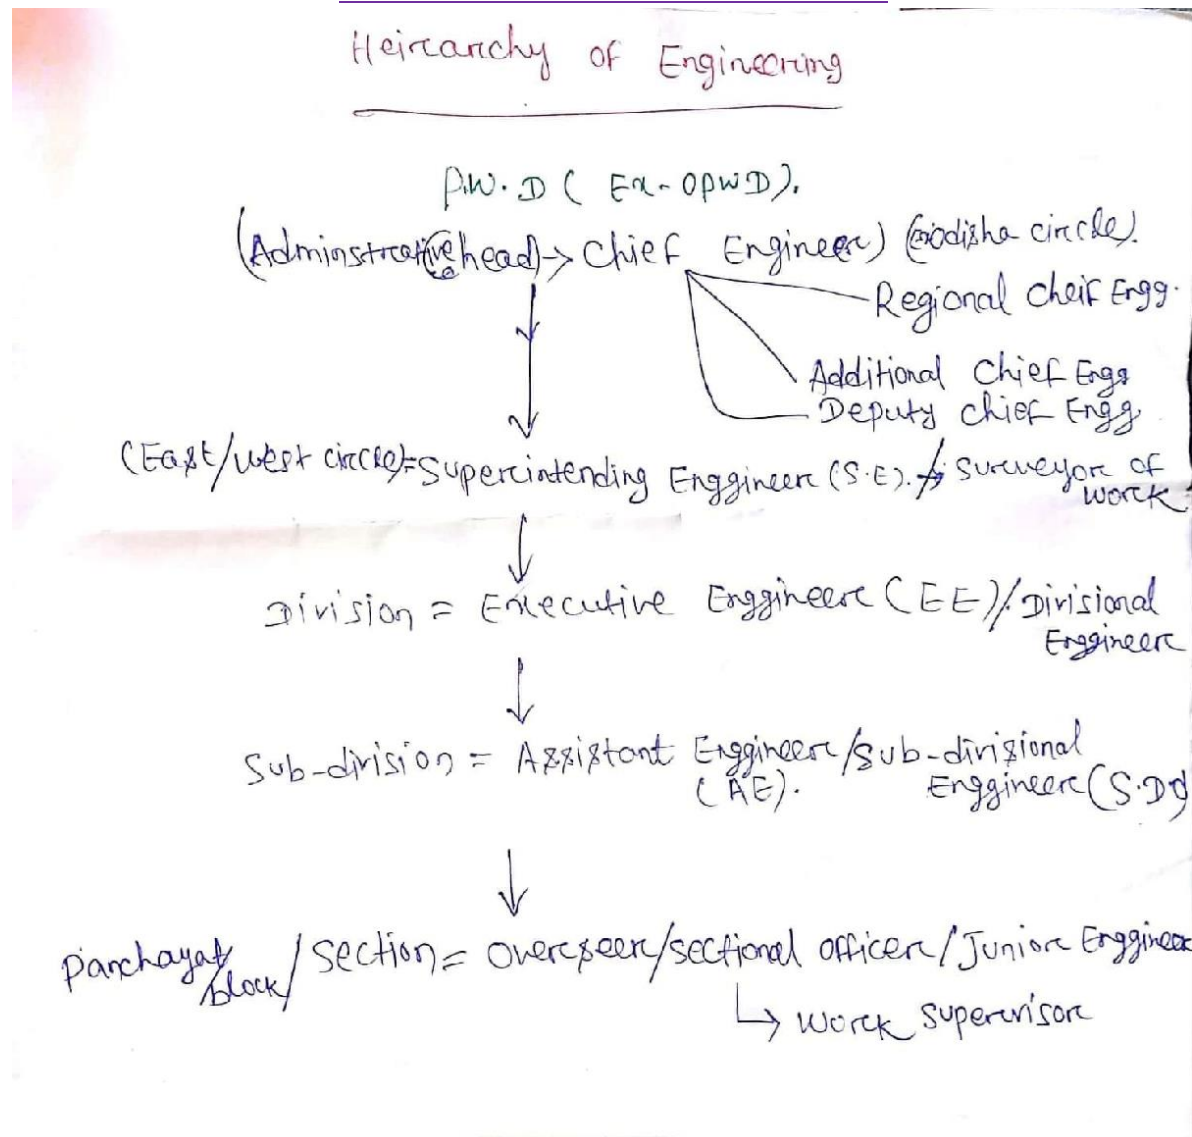 Heirarchy of Engineering
P.W.D ( Ex-OPWD).
(Adminstrative head) → Chief Engineer) (odisha circle).
Regional Cheif Engg.
Additional Chief Engg
Deputy chief Engg
(East/west circle)= Superintending Enggineer (S.E). Surveyor of
work
Division = Executive Enggineer (EE)/Divisional
Enggineer
Sub-division = Assistant Enggineer/sub-divisional
(AE). Enggineer (S.D
Panchayat/
block/ Section = Overseer/sectional officer/Junior Enggineer
↳ work supervisor